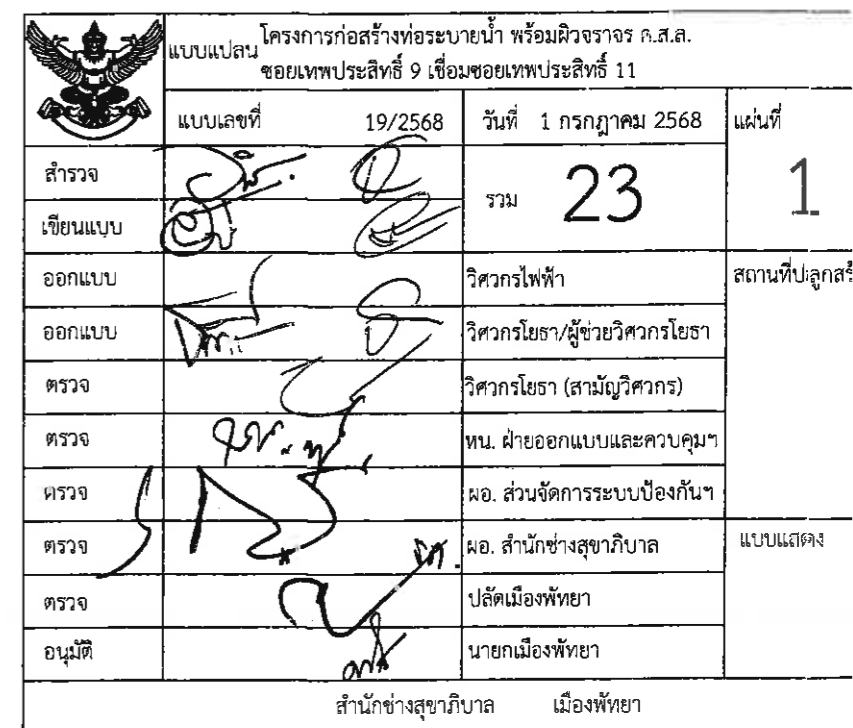 แบบแปลน โครงการก่อสร้างท่อระบายน้ำ พร้อมผิวจราจร ค.ส.ล.
ซอยเทพประสิทธิ์ 9 เชื่อมซอยเทพประสิทธิ์ 11
แบบเลขที่ 19/2568 วันที่ 1 กรกฎาคม 2568 แผ่นที่
สำรวจ
รวม 23 1
เขียนแบบ
ออกแบบ วิศวกรไฟฟ้า สถานที่ปลูกสร้
ออกแบบ วิศวกรโยธา/ผู้ช่วยวิศวกรโยธา
ตรวจ วิศวกรโยธา (สามัญวิศวกร)
ตรวจ หน. ฝ่ายออกแบบและควบคุมฯ
ตรวจ ผอ. ส่วนจัดการระบบป้องกันฯ
ตรวจ ผอ. สำนักช่างสุขาภิบาล แบบแสดง
ตรวจ ปลัดเมืองพัทยา
อนุมัติ นายกเมืองพัทยา
สำนักช่างสุขาภิบาล เมืองพัทยา